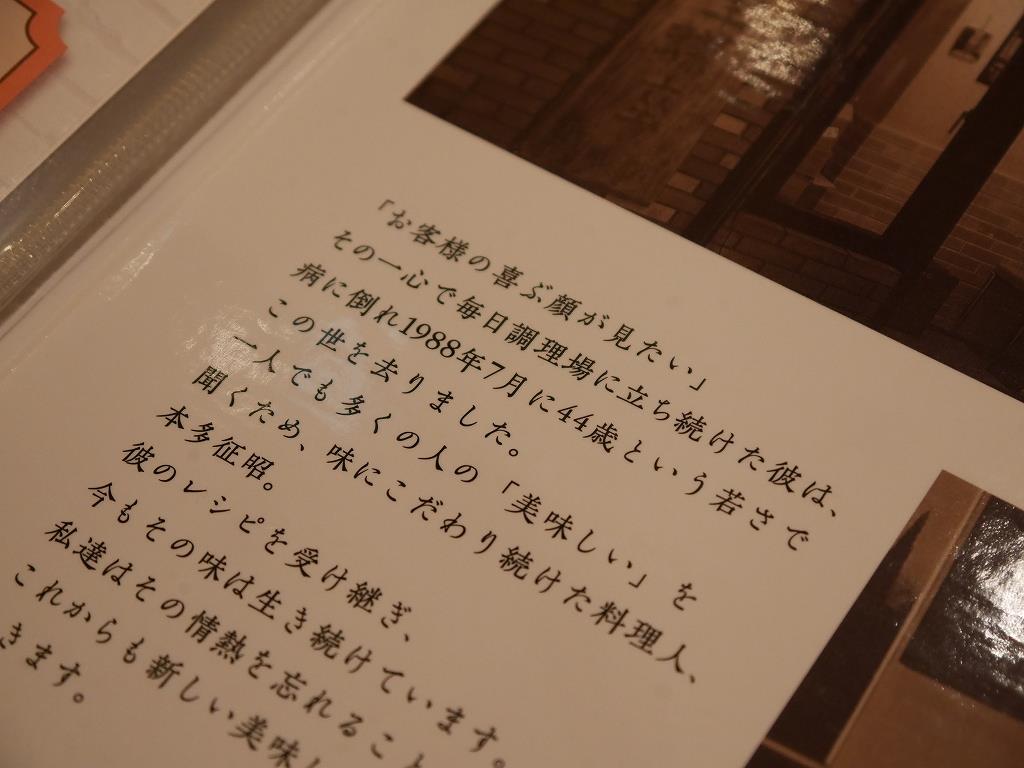 「お客様の喜ぶ顔が見たい」
その一心で毎日調理場に立ち続けた彼は、
病に倒れ1988年7月に44歳という若さで
この世を去りました。
一人でも多くの人の「美味しい」を
聞くため、味にこだわり続けた料理人、
本多征昭。
彼のレシピを受け継ぎ、
今もその味は生き続けています。
私達はその情熱を忘れること
これからも新しい美味し
きます。